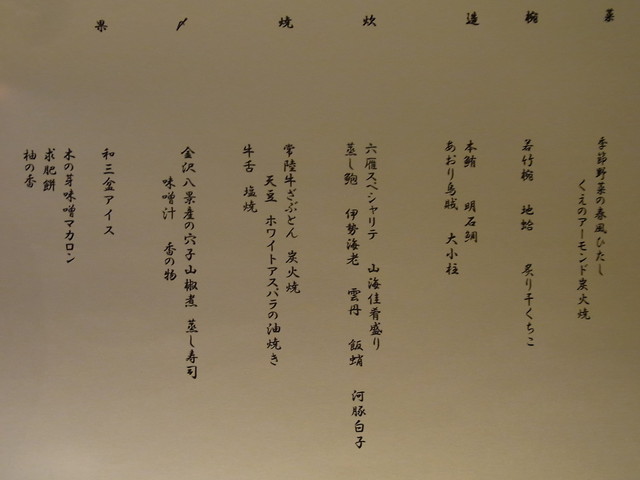 菜
季節野菜の春風ひたし
くえのアーモンド炭火焼
椀
若竹椀 地蛤 炙り干くちこ
造
本鮪 明石鯛
あおり烏賊 大小柱
炊
六雁スペシャリテ 山海佳肴盛り
蒸し鮑 伊勢海老 雲丹 飯蛸 河豚白子
焼
常陸牛ざぶとん 炭火焼
天豆 ホワイトアスパラの油焼き
牛舌 塩焼
〆
金沢八景産の穴子山椒煮 蒸し寿司
味噌汁 香の物
果
和三盆アイス
木の芽味噌マカロン
求肥餅
柚の香